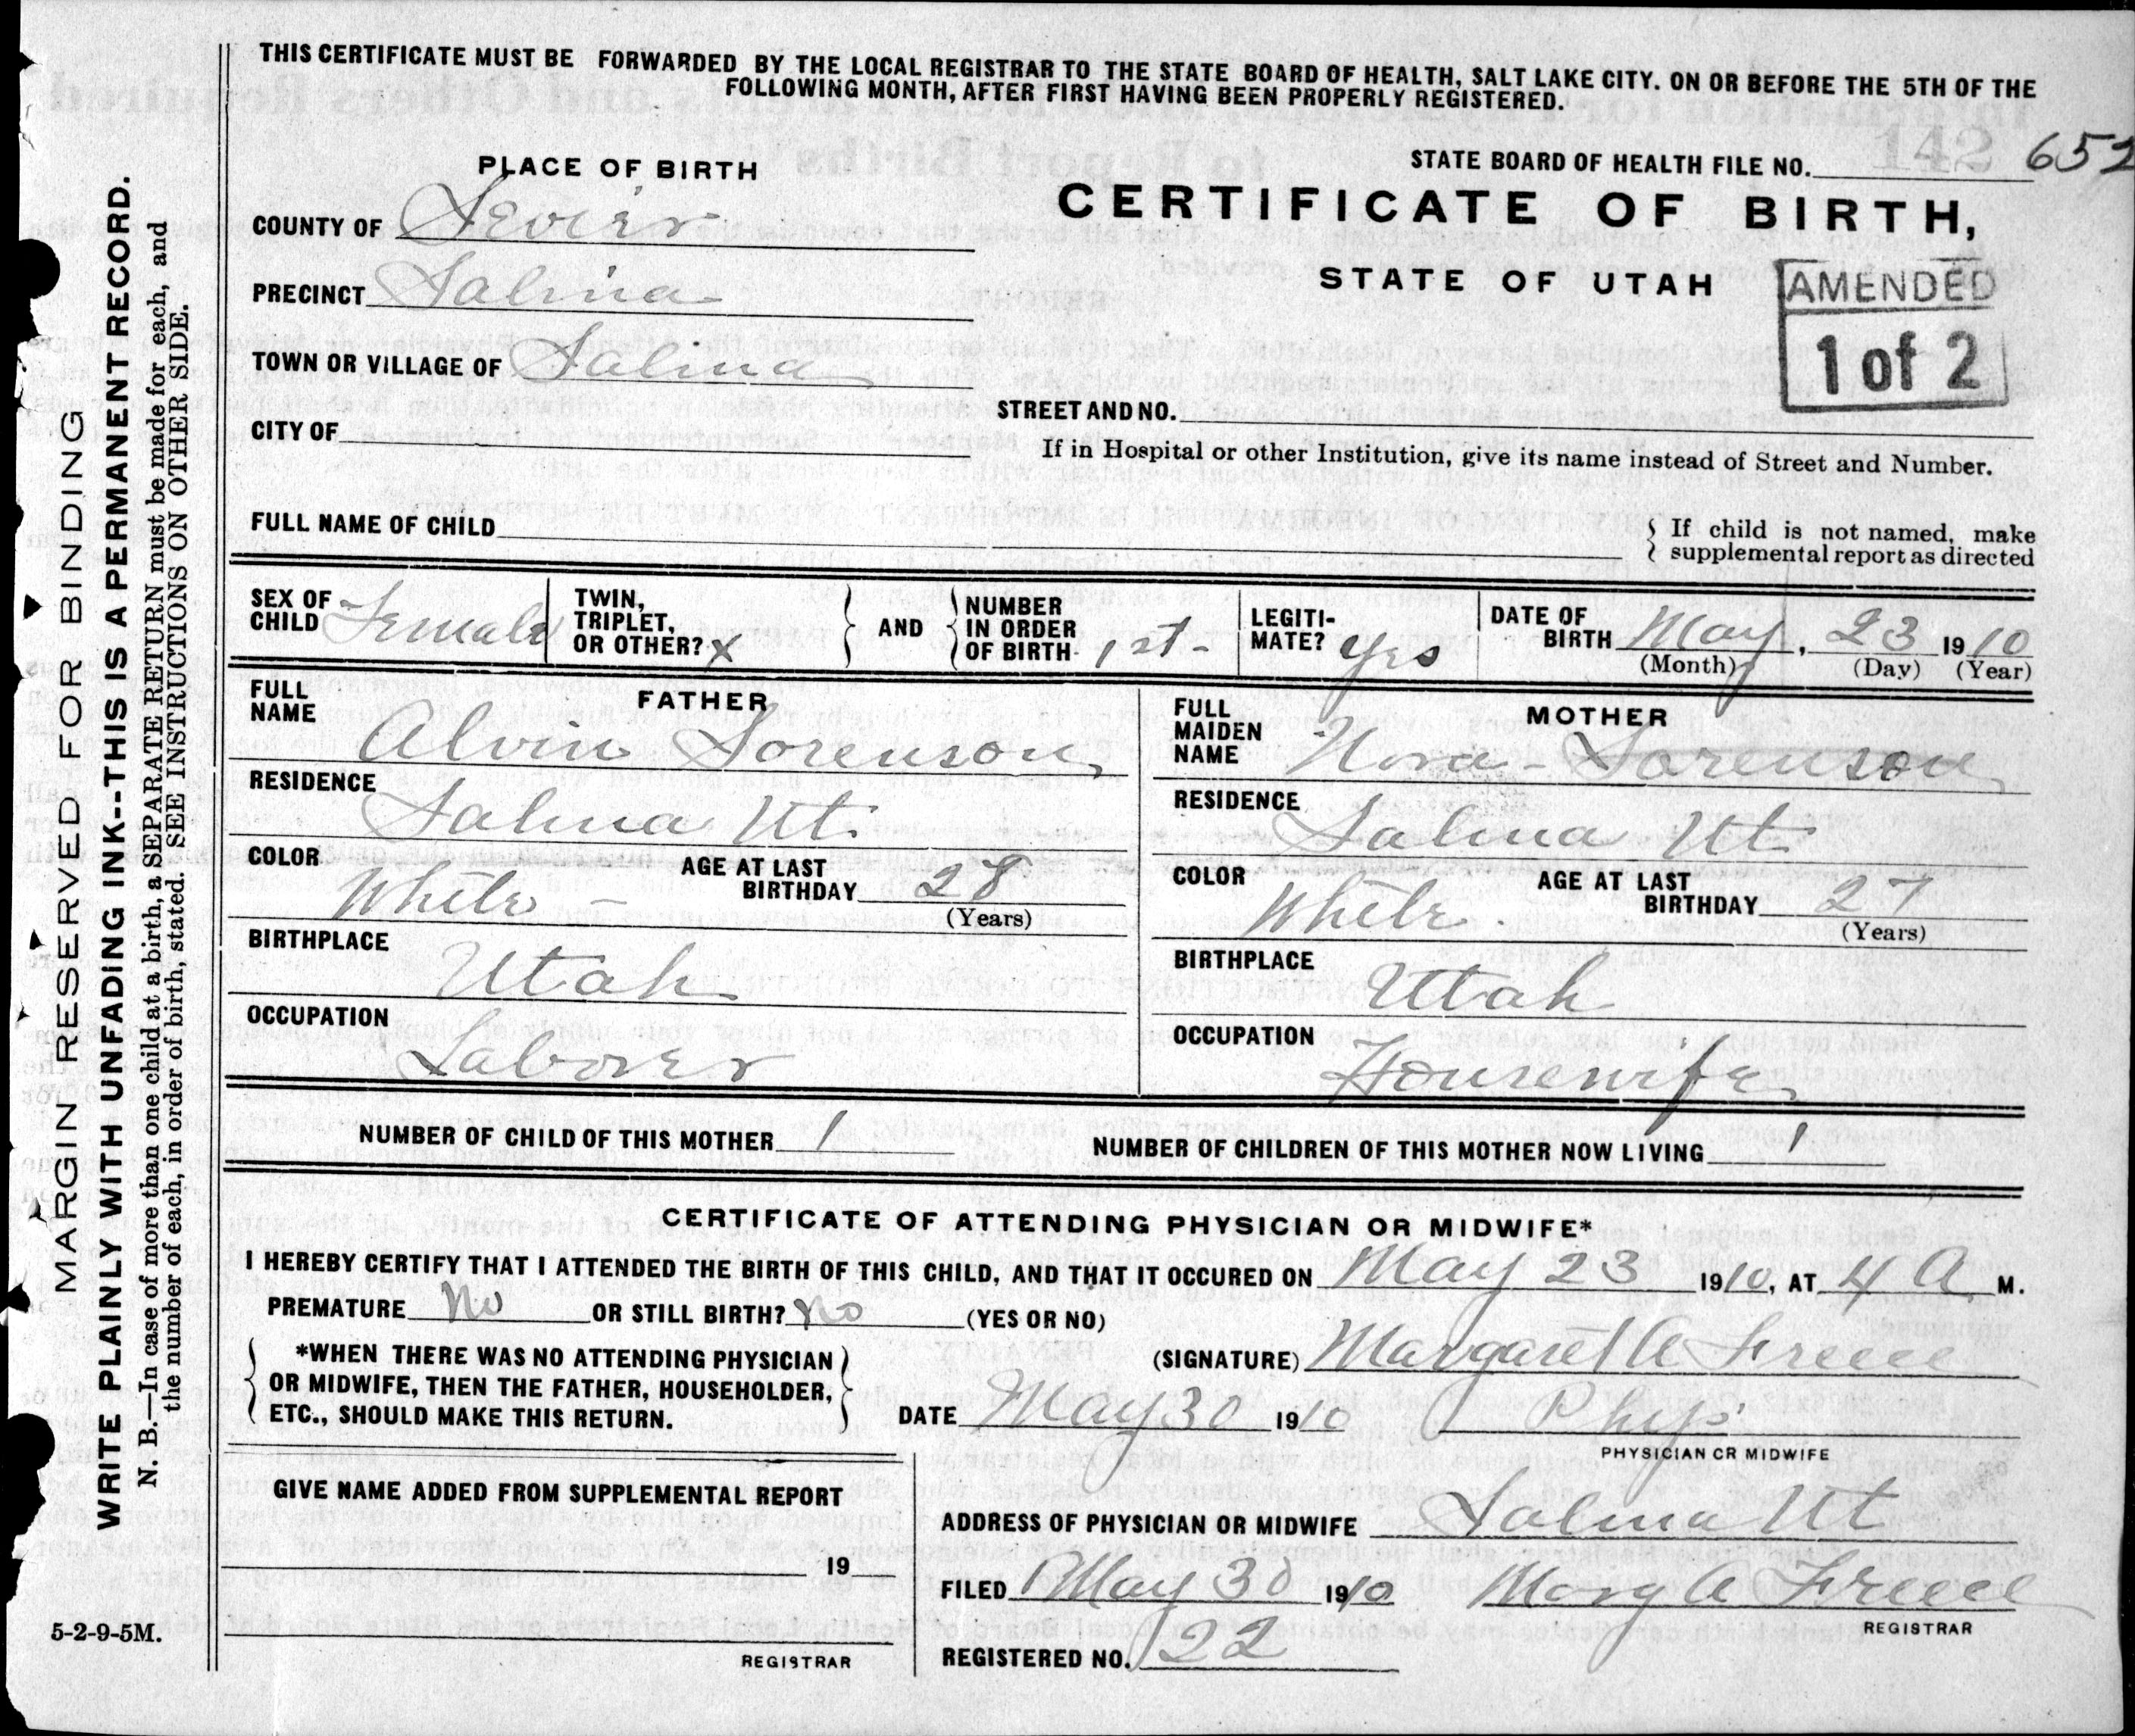 THIS CERTIFICATE MUST BE FORWARDED BY THE LOCAL REGISTRAR TO THE STATE BOARD OF HEALTH, SALT LAKE CITY. ON OR BEFORE THE 5TH OF THE
FOLLOWING MONTH, AFTER FIRST HAVING BEEN PROPERLY REGISTERED.
PLACE OF BIRTH
STATE BOARD OF HEALTH FILE NO. 142 652
COUNTY OF Sevier
CERTIFICATE OF BIRTH,
PRECINCT Salina
STATE OF UTAH
AMENDED
1 of 2
TOWN OR VILLAGE OF Salina
STREET AND NO.
CITY OF
If in Hospital or other Institution, give its name instead of Street and Number.
FULL NAME OF CHILD
{ If child is not named, make
supplemental report as directed
SEX OF CHILD Female
TWIN, TRIPLET, OR OTHER? x
AND
NUMBER IN ORDER OF BIRTH 1st -
LEGITI-MATE? Yes
DATE OF BIRTH May, 23 1910
(Month) (Day) (Year)
FATHER
FULL NAME Alvin Sorenson
RESIDENCE Salina Ut.
COLOR White - AGE AT LAST BIRTHDAY 28
(Years)
BIRTHPLACE Utah
OCCUPATION Laborer
MOTHER
FULL MAIDEN NAME Nora - Sorenson
RESIDENCE Salina Ut.
COLOR White. AGE AT LAST BIRTHDAY 27
(Years)
BIRTHPLACE Utah
OCCUPATION Housewife
NUMBER OF CHILD OF THIS MOTHER 1 NUMBER OF CHILDREN OF THIS MOTHER NOW LIVING 1
CERTIFICATE OF ATTENDING PHYSICIAN OR MIDWIFE*
I HEREBY CERTIFY THAT I ATTENDED THE BIRTH OF THIS CHILD, AND THAT IT OCCURED ON May 23 1910, AT 4 A M.
PREMATURE No OR STILL BIRTH? No (YES OR NO)
*WHEN THERE WAS NO ATTENDING PHYSICIAN
OR MIDWIFE, THEN THE FATHER, HOUSEHOLDER,
ETC., SHOULD MAKE THIS RETURN.
(SIGNATURE) Margaret A Freece
DATE May 30 1910 Phys
PHYSICIAN OR MIDWIFE
GIVE NAME ADDED FROM SUPPLEMENTAL REPORT
19
REGISTRAR
ADDRESS OF PHYSICIAN OR MIDWIFE Salina Ut
FILED May 30 1910 Marg A Freece
REGISTRAR
REGISTERED NO. 22
MARGIN RESERVED FOR BINDING
WRITE PLAINLY WITH UNFADING INK--THIS IS A PERMANENT RECORD.
N. B.—In case of more than one child at a birth, a SEPARATE RETURN must be made for each, and
the number of each, in order of birth, stated. SEE INSTRUCTIONS ON OTHER SIDE.
5-2-9-5M.